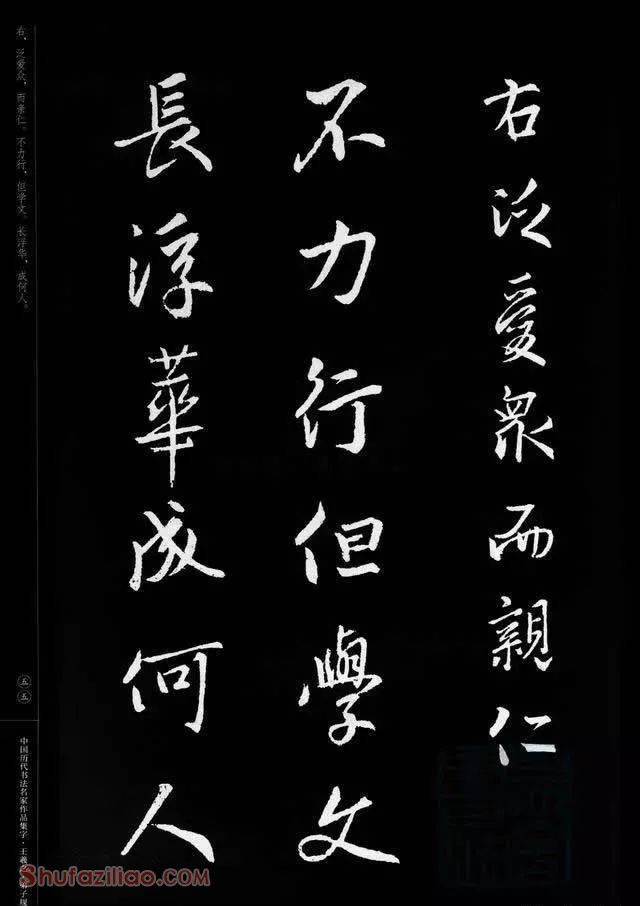 右泛愛衆而親仁
不力行但學文
長浮華成何人
右，泛爱众，而亲仁。不力行，但学文。长浮华，成何人。
五五
中国历代书法名家作品集字·王羲
子规
Shufaziliao.com